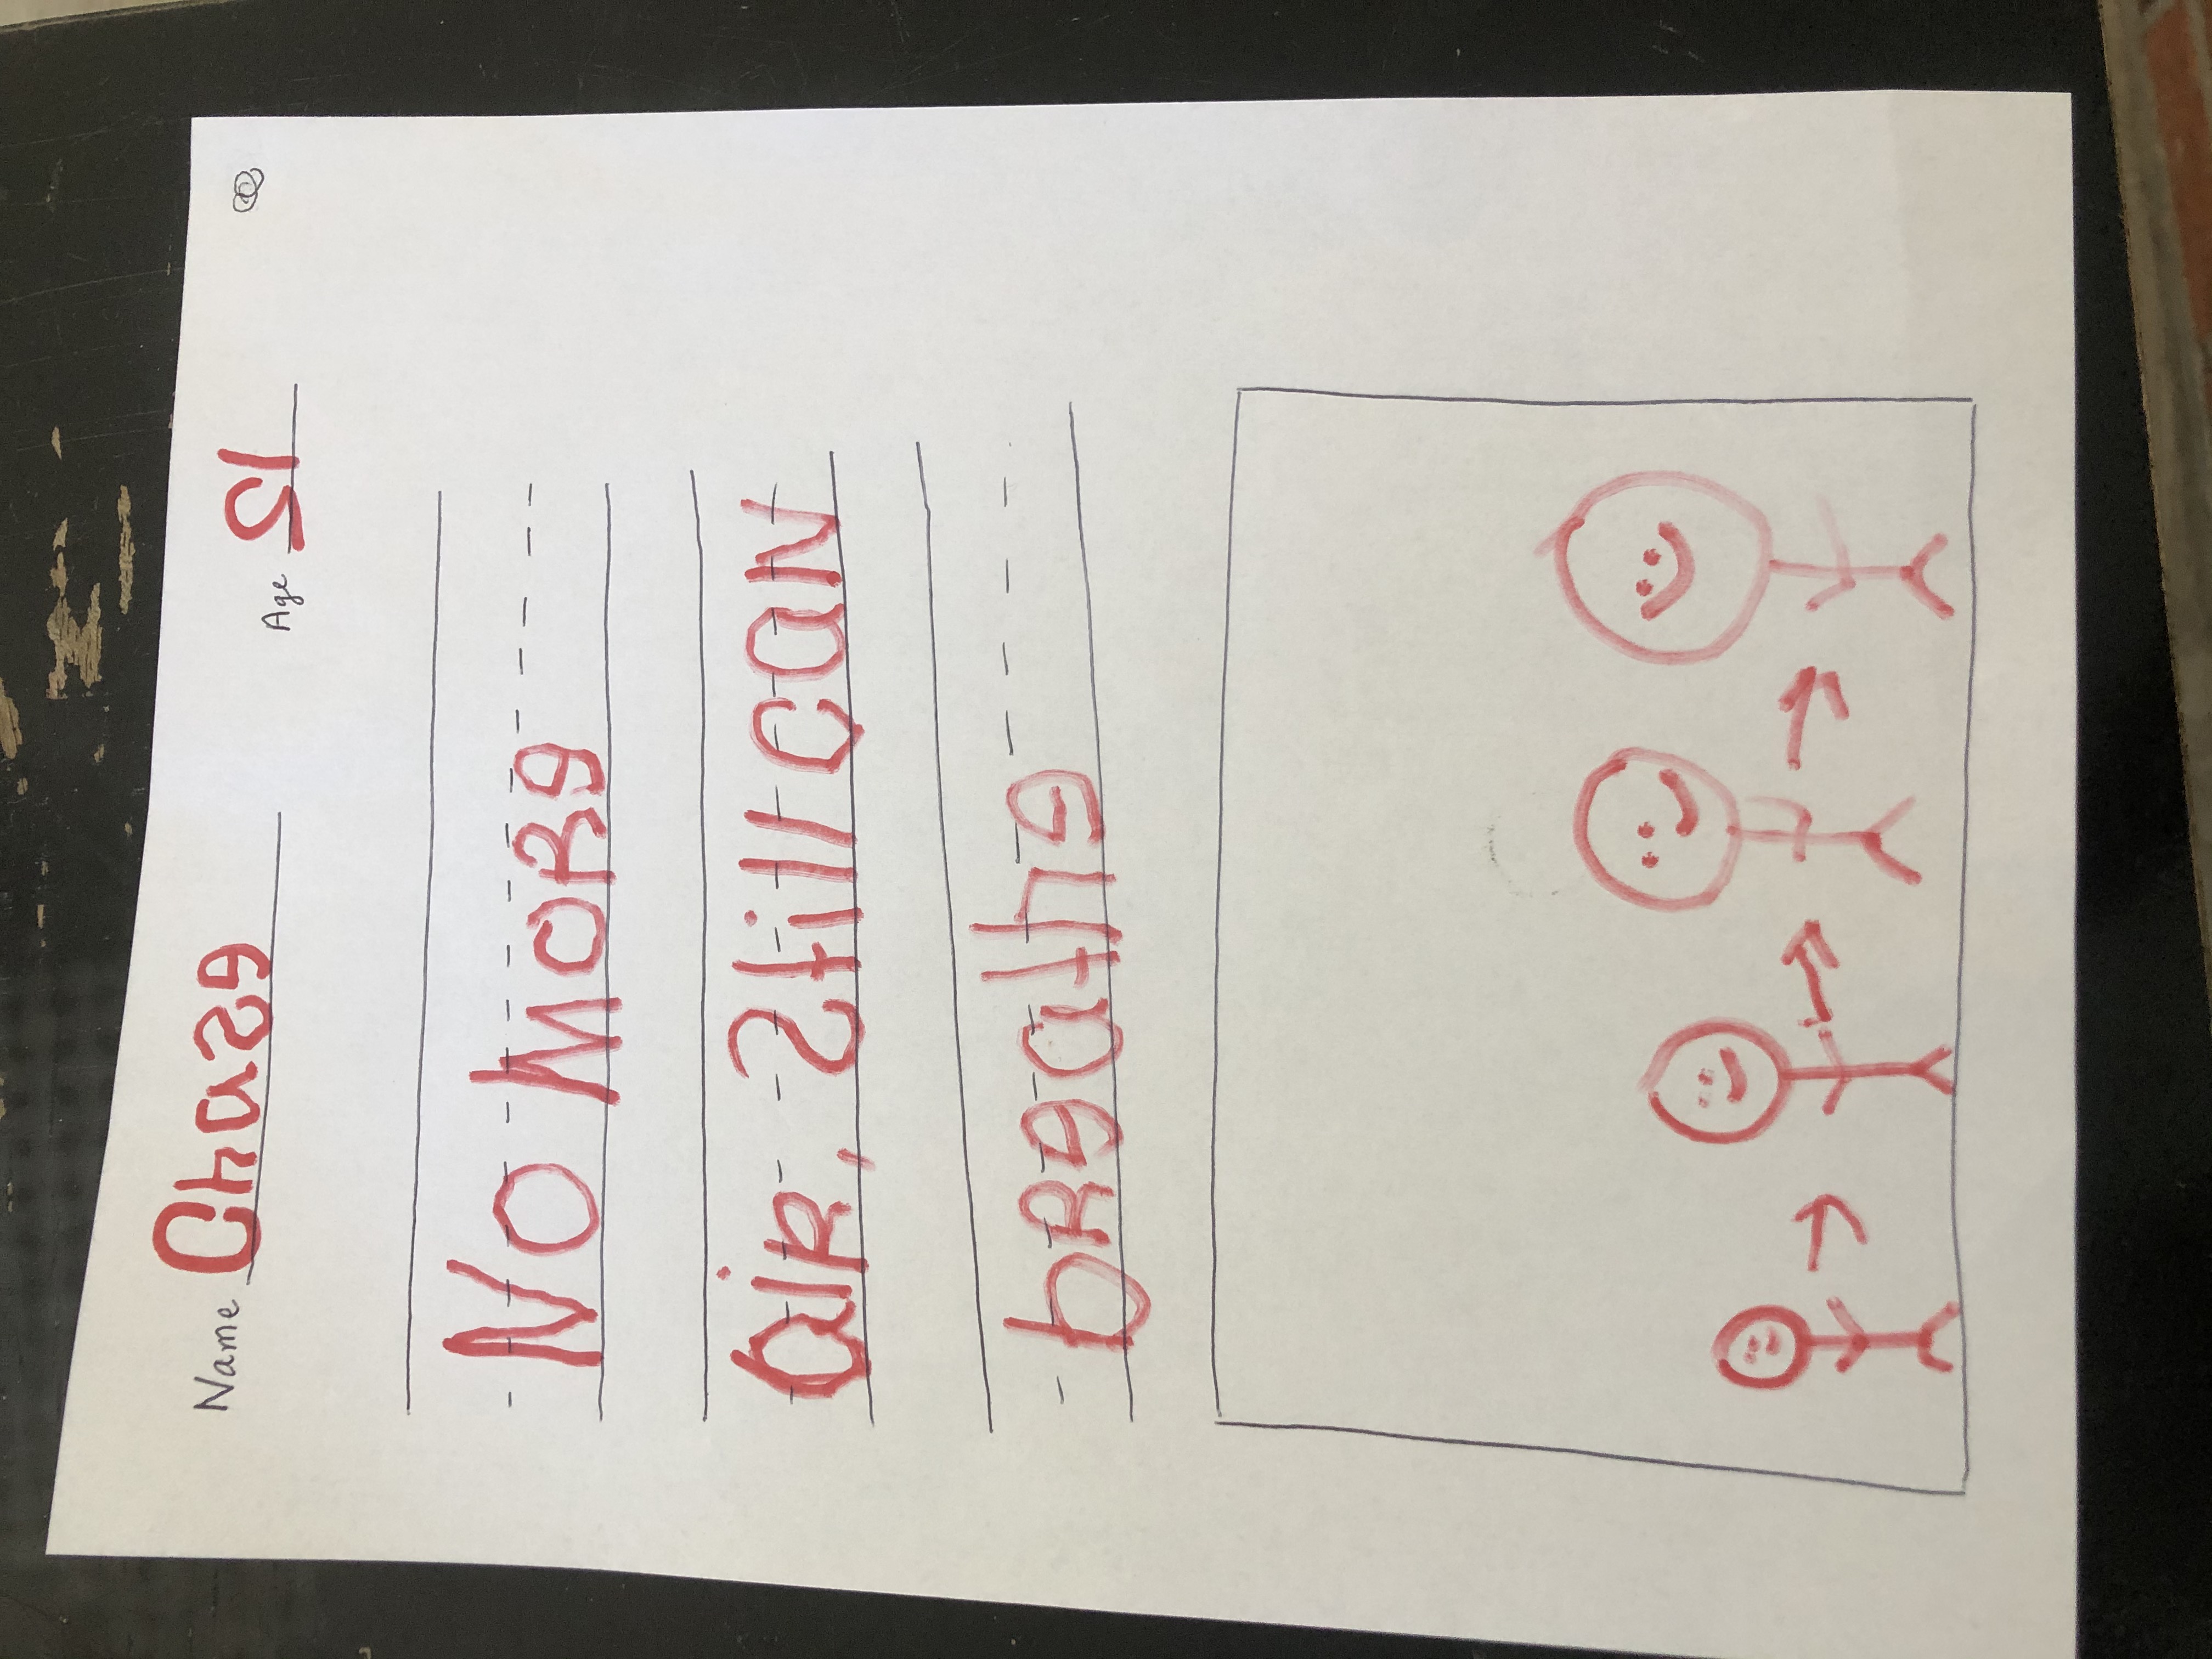 Name Chase Age 21
No MoRe
aiR, Still caN
bReathe